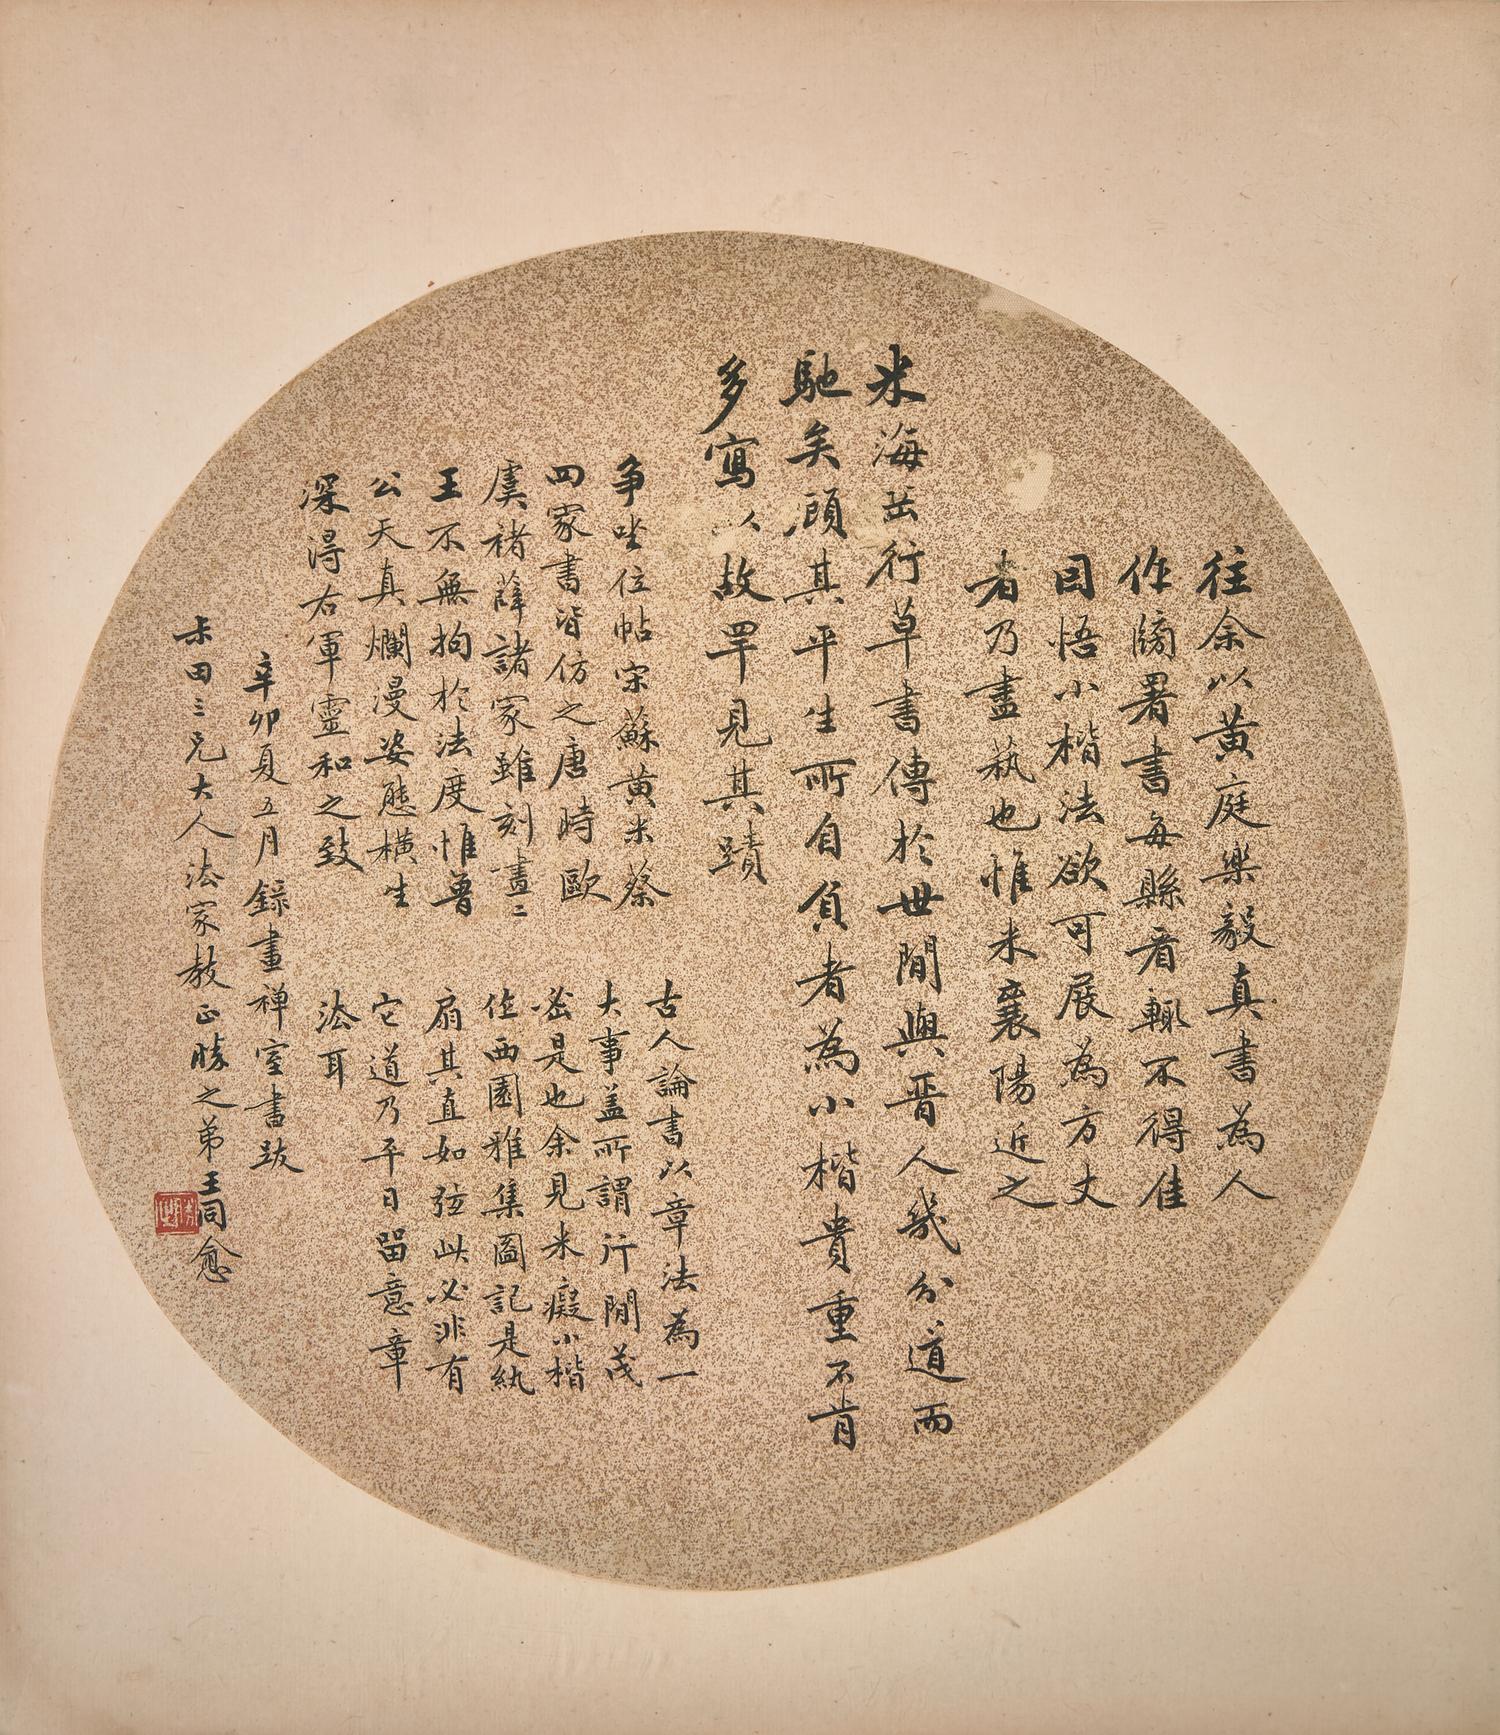 往余以黃庭樂毅真書為人
作牓署書每縣看輒不得佳
因悟小楷法欲可展為方丈
者乃盡執也惟米襄陽近之
米海岳行草書傳於世間與晉人幾分道而
馳矣顧其平生所自負者為小楷貴重不肯
多寫以故罕見其蹟
爭坐位帖宋蘇黃米蔡
四家書皆仿之唐時歐
虞褚薛諸家雖刻畫二
王不無拘於法度惟魯
公天真爛漫姿態橫生
深得右軍靈和之致
古人論書以章法為一
大事蓋所謂行間茂
密是也余見米癡小楷
作西園雅集圖記是紈
扇其直如弦此必非有
它道乃平日留意章
法耳
辛卯夏五月錄畫禪室書跋
未田三兄大人法家教正勝之弟王同愈
勝之